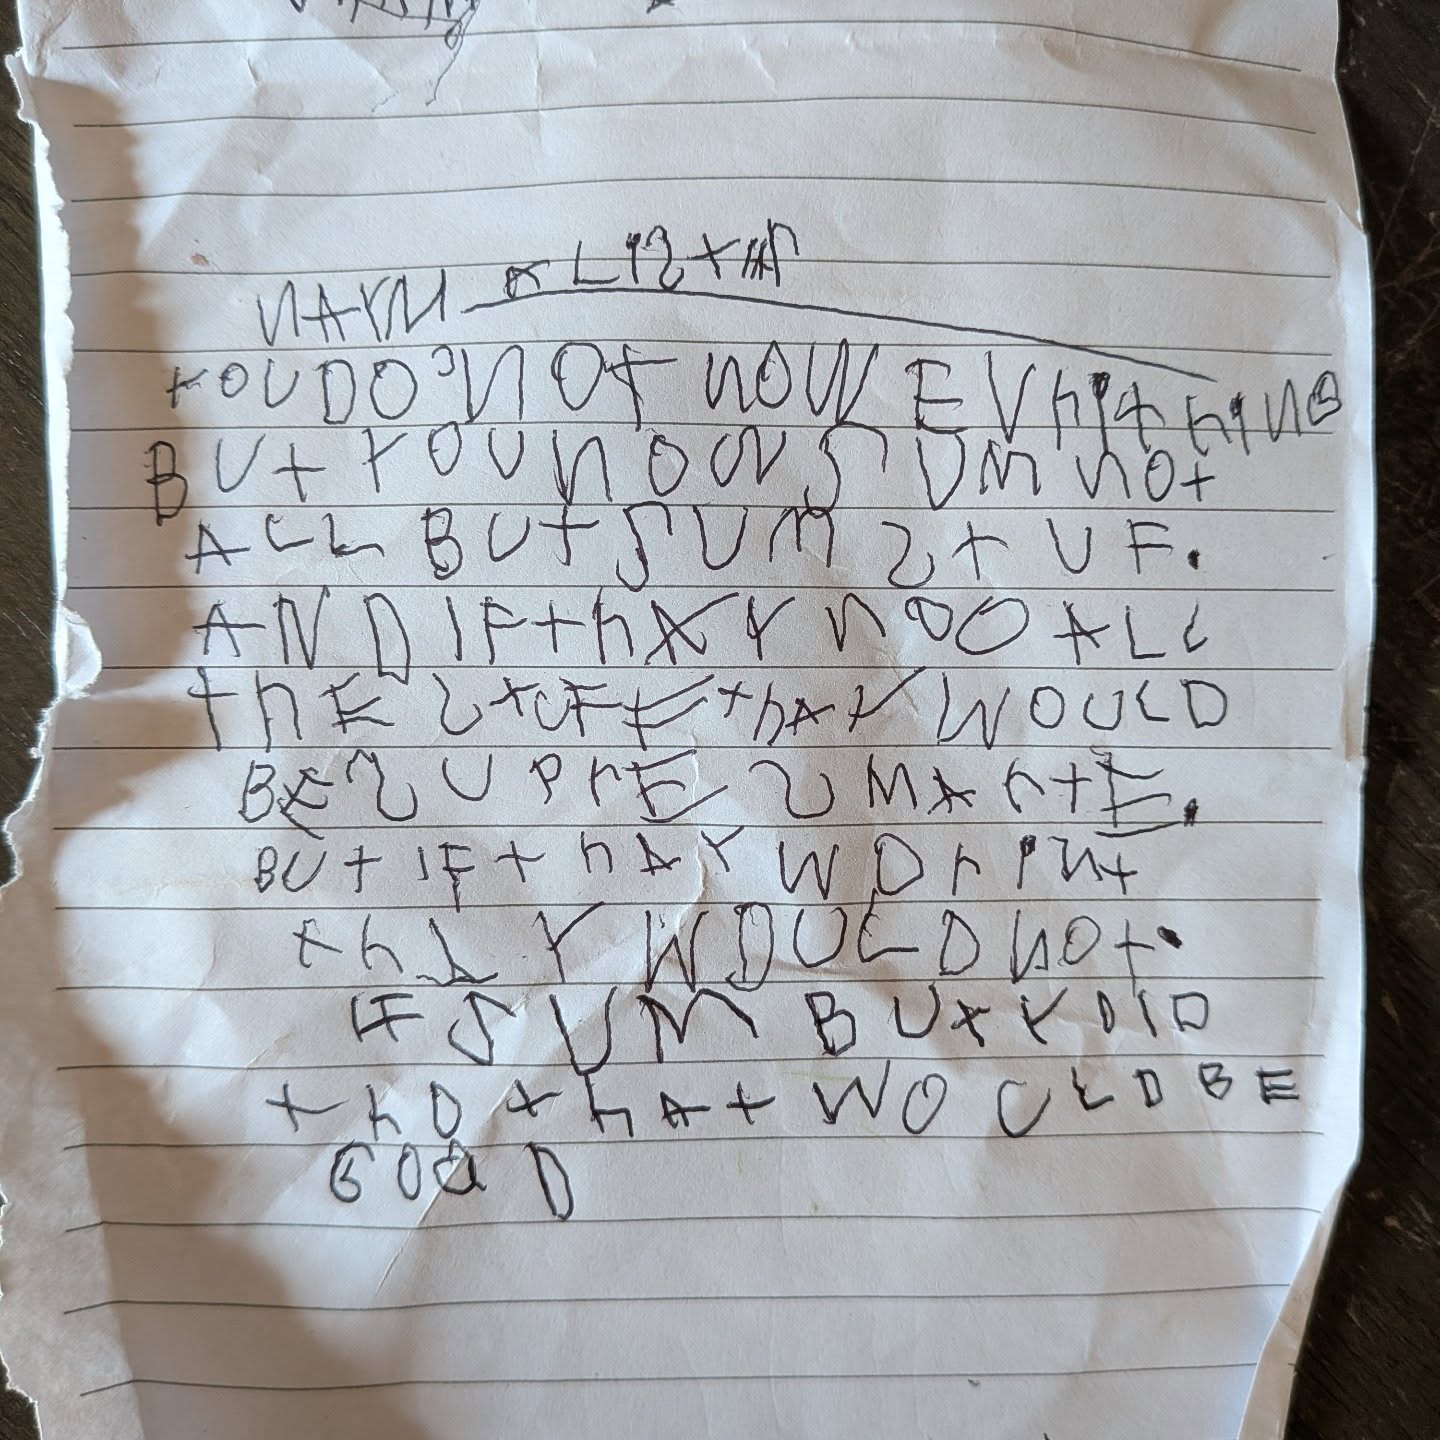 YOU DO NOT NOW EVRITHING
BUT YOU NOW SUM NOT
ALL BUT SUM STUF.
AND IF THAY NOO ALL
THE STUFE THAY WOULD
BE SUPRE SMARTE.
BUT IF THAY WOR INT
THAY WOULD NOT.
IF SUM BUTY DID
THO THAT WOULD BE
GOOD